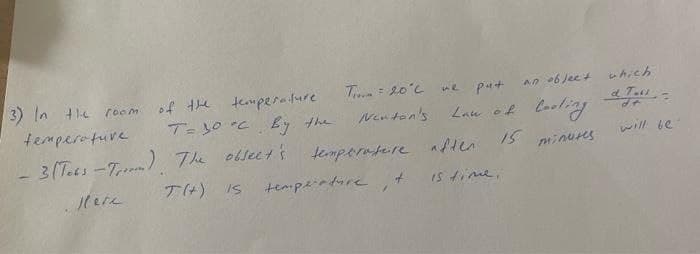 3) In the room of the temperature Troom = 20°C we put an object which
temperature T = 30 °C. By the Newton's Law of Cooling d Tobs / dt =
- 3(Tobs - Troom). The obsect's temperature after 15 minutes will be
. Here T(t) is temperature, t is time.